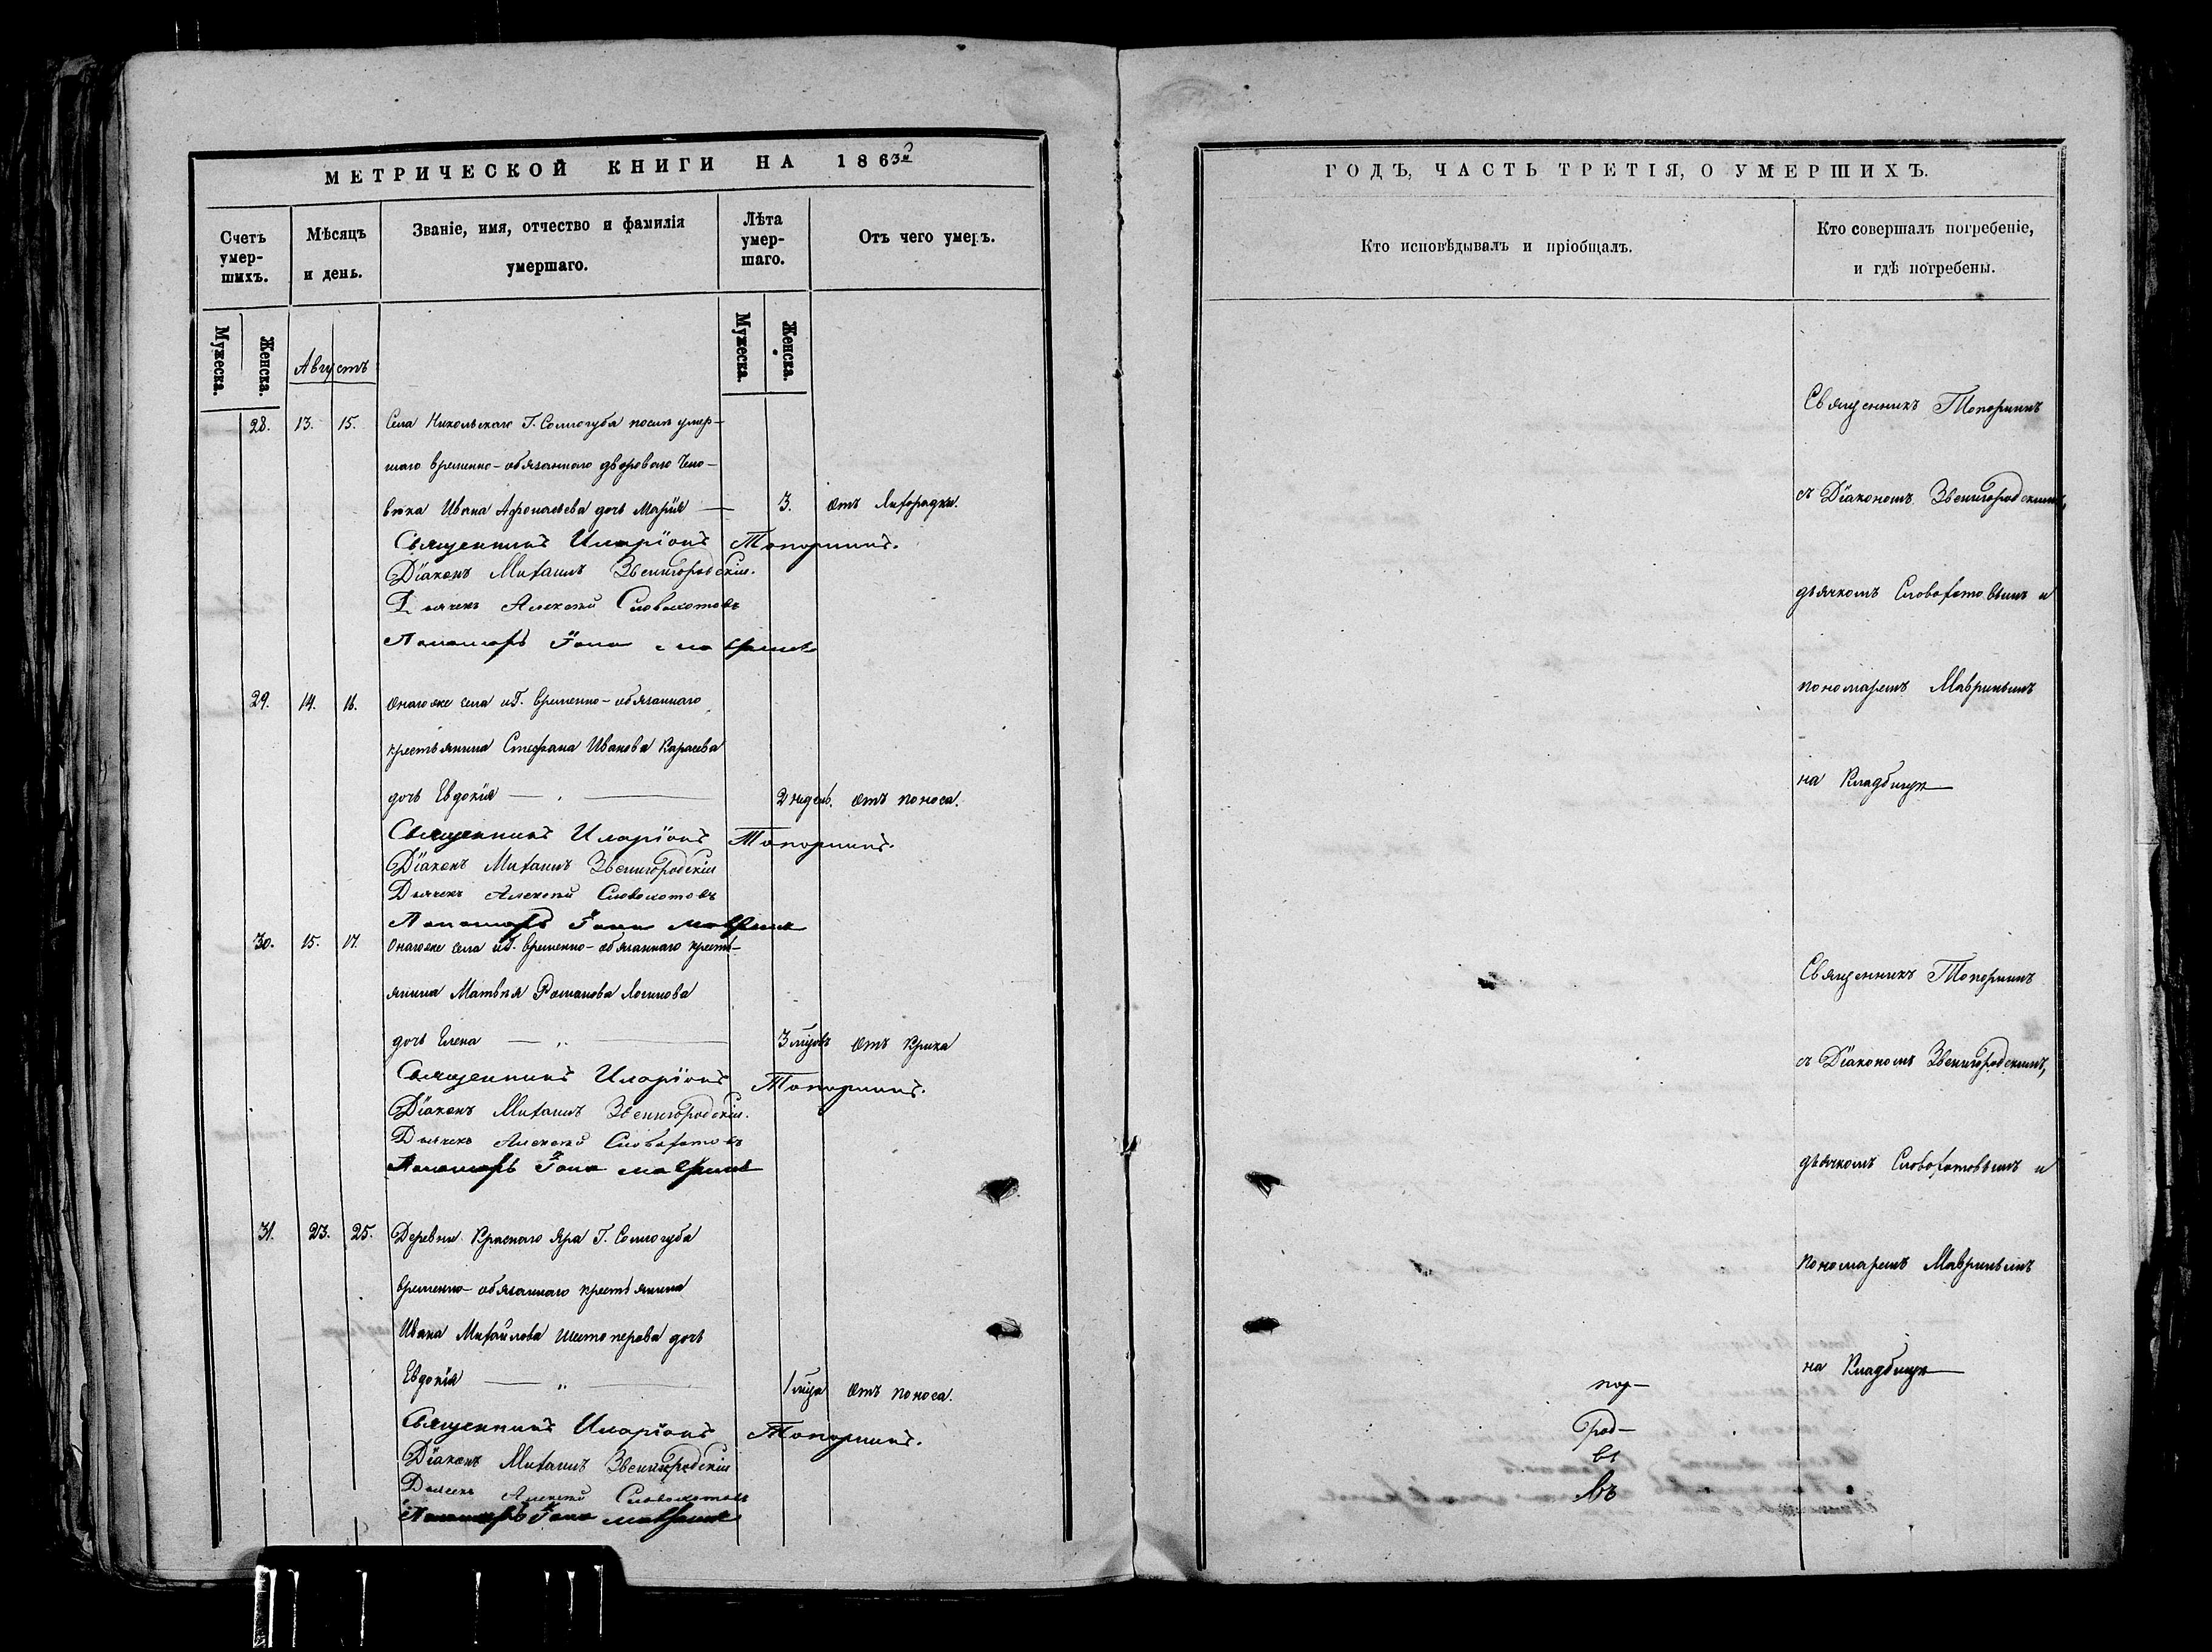 МЕТРИЧЕСКОЙ КНИГИ НА 1863й
Счетъ умер-шихъ.
Мѣсяцъ и день.
Званіе, имя, отчество и фамилія умершаго.
Лѣта умер-шаго.
Отъ чего умеръ.
Мужеска.
Женска.
Августъ
Мужеска.
Женска.
28. 13. 15. Села Никольскаго Г. Соллогуба послѣ умер-
шаго временно-обязаннаго двороваго чело-
вѣка Ивана Афонасьева дочь Марія — 3. Отъ лихорадки.
Священникъ Иларіонъ Топорнинъ.
Діаконъ Михаилъ Звенигородскій.
Дьячекъ Алексѣй Словохотовъ
Пономарь Іона Мавринъ
29. 14. 16. Онагоже села и Г. временно-обязаннаго
крестьянина Стефана Иванова Карасева
дочь Евдокія — „ — 2 недѣль. Отъ поноса.
Священникъ Иларіонъ Топорнинъ.
Діаконъ Михаилъ Звенигородскій
Дьячекъ Алексѣй Словохотовъ
Пономарь Іона Мавринъ
30. 15. 17. Онагоже села и Г. временно-обязаннаго кресть-
янина Матвѣя Романова Логинова
дочь Елена — „ — 3 мцовъ Отъ крика
Священникъ Иларіонъ Топорнинъ.
Діаконъ Михаилъ Звенигородскій.
Дьячекъ Алексѣй Словохотовъ
Пономарь Іона Мавринъ
31. 23. 25. Деревни Краснаго Яра Г. Соллогуба
временно-обязаннаго крестьянина
Ивана Михайлова Шестоперова дочь
Евдокія — „ — 1 мца Отъ поноса.
Священникъ Иларіонъ Топорнинъ.
Діаконъ Михаилъ Звенигородскій
Дьячекъ Алексѣй Словохотовъ
Пономарь Іона Мавринъ
ГОДЪ, ЧАСТЬ ТРЕТІЯ, О УМЕРШИХЪ.
Кто исповѣдывалъ и пріобщалъ.
Кто совершалъ погребеніе,
и гдѣ погребены.
Священникъ Топорнинъ
съ Діакономъ Звенигородскимъ,
дьячкомъ Словохотовымъ и
пономаремъ Мавринымъ
на Кладбищѣ
Священникъ Топорнинъ
съ Діакономъ Звенигородскимъ,
дьячкомъ Словохотовымъ и
пономаремъ Мавринымъ
на Кладбищѣ
под-
Град-
въ